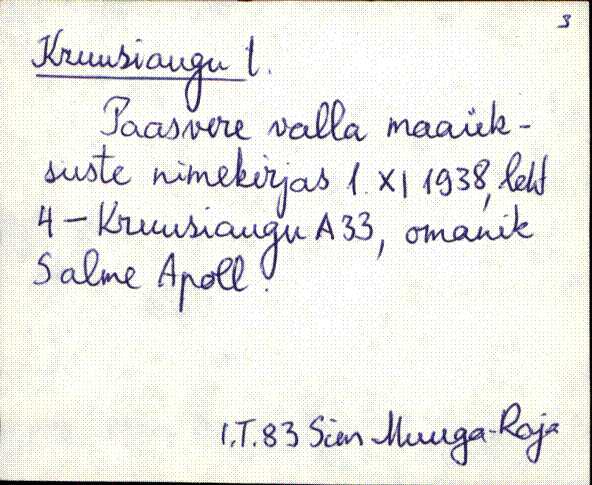 3
Kruusiaugu t.
Paasvere valla maaük-
suste nimekirjas 1. XI 1938, leht
4 – Kruusiaugu A 33, omanik
Salme Apoll.
I.T. 83 Sim Muuga-Roja